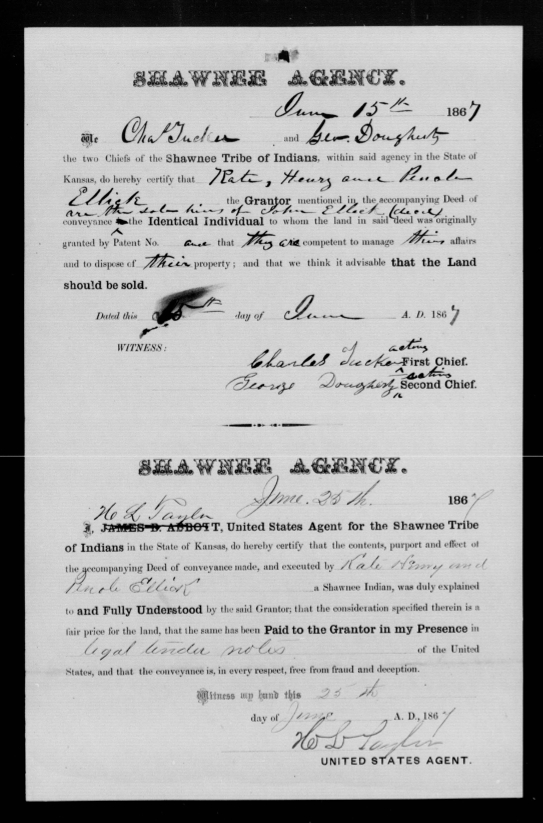 SHAWNEE AGENCY.
June 15th 1867
We Chas Tucker and Geo. Dougherty
the two Chiefs of the Shawnee Tribe of Indians, within said agency in the State of
Kansas, do hereby certify that Kate, Henry and
Ellick the Grantor mentioned in the accompanying Deed of
are the sole heirs of John Ellick (decd)
conveyance the Identical Individual to whom the land in said deed was originally
granted by Patent No. and that they are competent to manage affairs
and to dispose of their property; and that we think it advisable that the Land
should be sold.
Dated this 15th day of June A. D. 1867
WITNESS:
acting
Charles Tucker First Chief.
acting
George Dougherty Second Chief.
SHAWNEE AGENCY.
June. 25th. 1867
H L Taylor
I, JAMES B. ABBOTT, United States Agent for the Shawnee Tribe
of Indians in the State of Kansas, do hereby certify that the contents, purport and effect of
the accompanying Deed of conveyance made, and executed by Kate Henry and
Ellick a Shawnee Indian, was duly explained
to and Fully Understood by the said Grantor; that the consideration specified therein is a
fair price for the land, that the same has been Paid to the Grantor in my Presence in
legal tender notes of the United
States, and that the conveyance is, in every respect, free from fraud and deception.
Witness my hand this 25th
day of June A. D., 1867
H L Taylor
UNITED STATES AGENT.